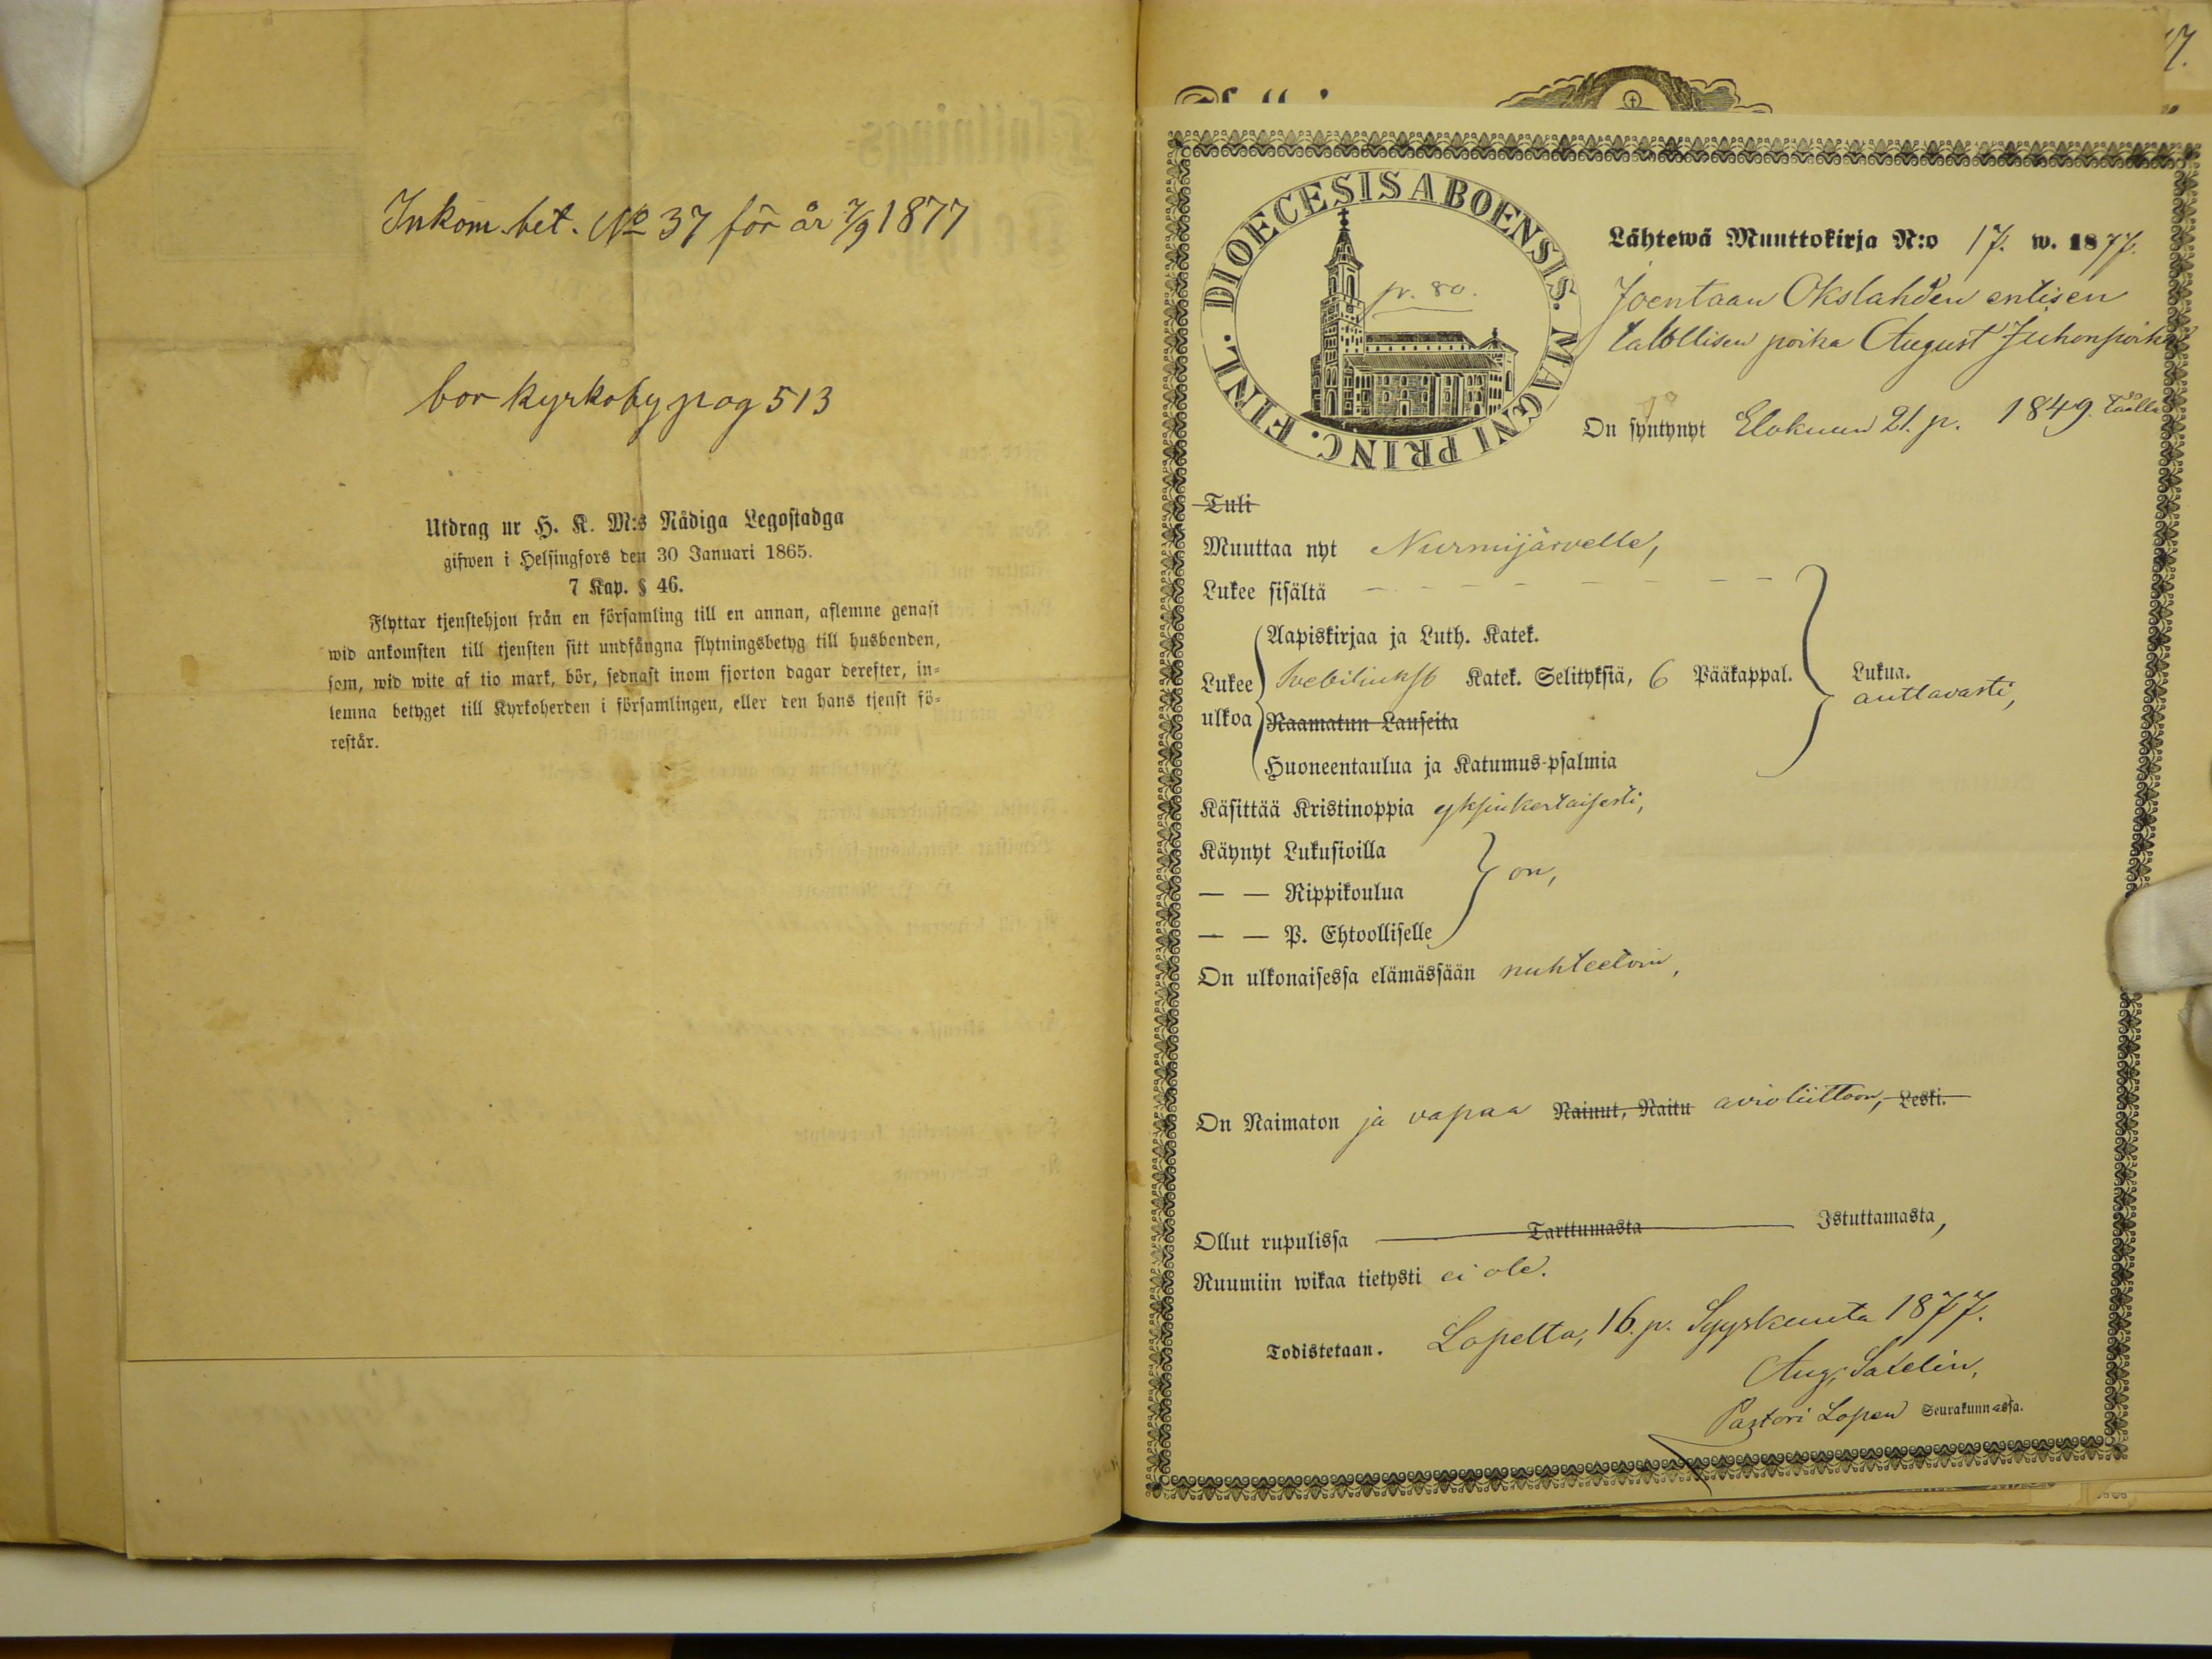 Inkom. bet. No 37 för år 7/9 1877
bor kyrkoby pag 513
Utdrag ur H. K. M:s Nådiga Legostadga
gifwen i Helsingfors den 30 Januari 1865.
7 Kap. § 46.
Flyttar tjenstehjon från en församling till en annan, aflemne genast
wid ankomsten till tjensten sitt undfångna flytningsbetyg till husbonden,
som, wid wite af tio mark, bör, sednast inom fjorton dagar derefter, in-
lemna betyget till Kyrkoherden i församlingen, eller den hans tjenst fö-
restår.
17.
DIOECESIS ABOENSIS. MAGNI PRINC. FINL.
p. 80.
Lähtewä Muuttokirja N:o 17. w. 1877.
Joentaan Okslahden entisen
talollisen poika August Juhonpoika
On syntynyt Elokuun 21. p. 1849. täällä
Tuli
Muuttaa nyt Nurmijärvelle,
Lukee sisältä - - - - - - - -
Aapiskirjaa ja Luth. Katek.
Lukee Svebiliukse Katek. Selityksiä, 6 Pääkappal. Lukua.
auttavasti,
ulkoa Raamatun Lauseita
Huoneentaulua ja Katumus-psalmia
Käsittää Kristinoppia yksinkertaisesti,
Käynyt Lukusioilla
— — Rippikoulua on,
— — P. Ehtoolliselle
On ulkonaisessa elämässään nuhteetoin,
On Naimaton ja vapaa Nainut, Naitu avioliittoon, Leski.
Ollut rupulissa Tarttumasta Istuttamasta,
Ruumiin wikaa tietysti ei ole.
Todistetaan. Lopelta, 16. p. Syyskuuta 1877.
Aug. Salelin,
Pastori Lopen Seurakunnassa.